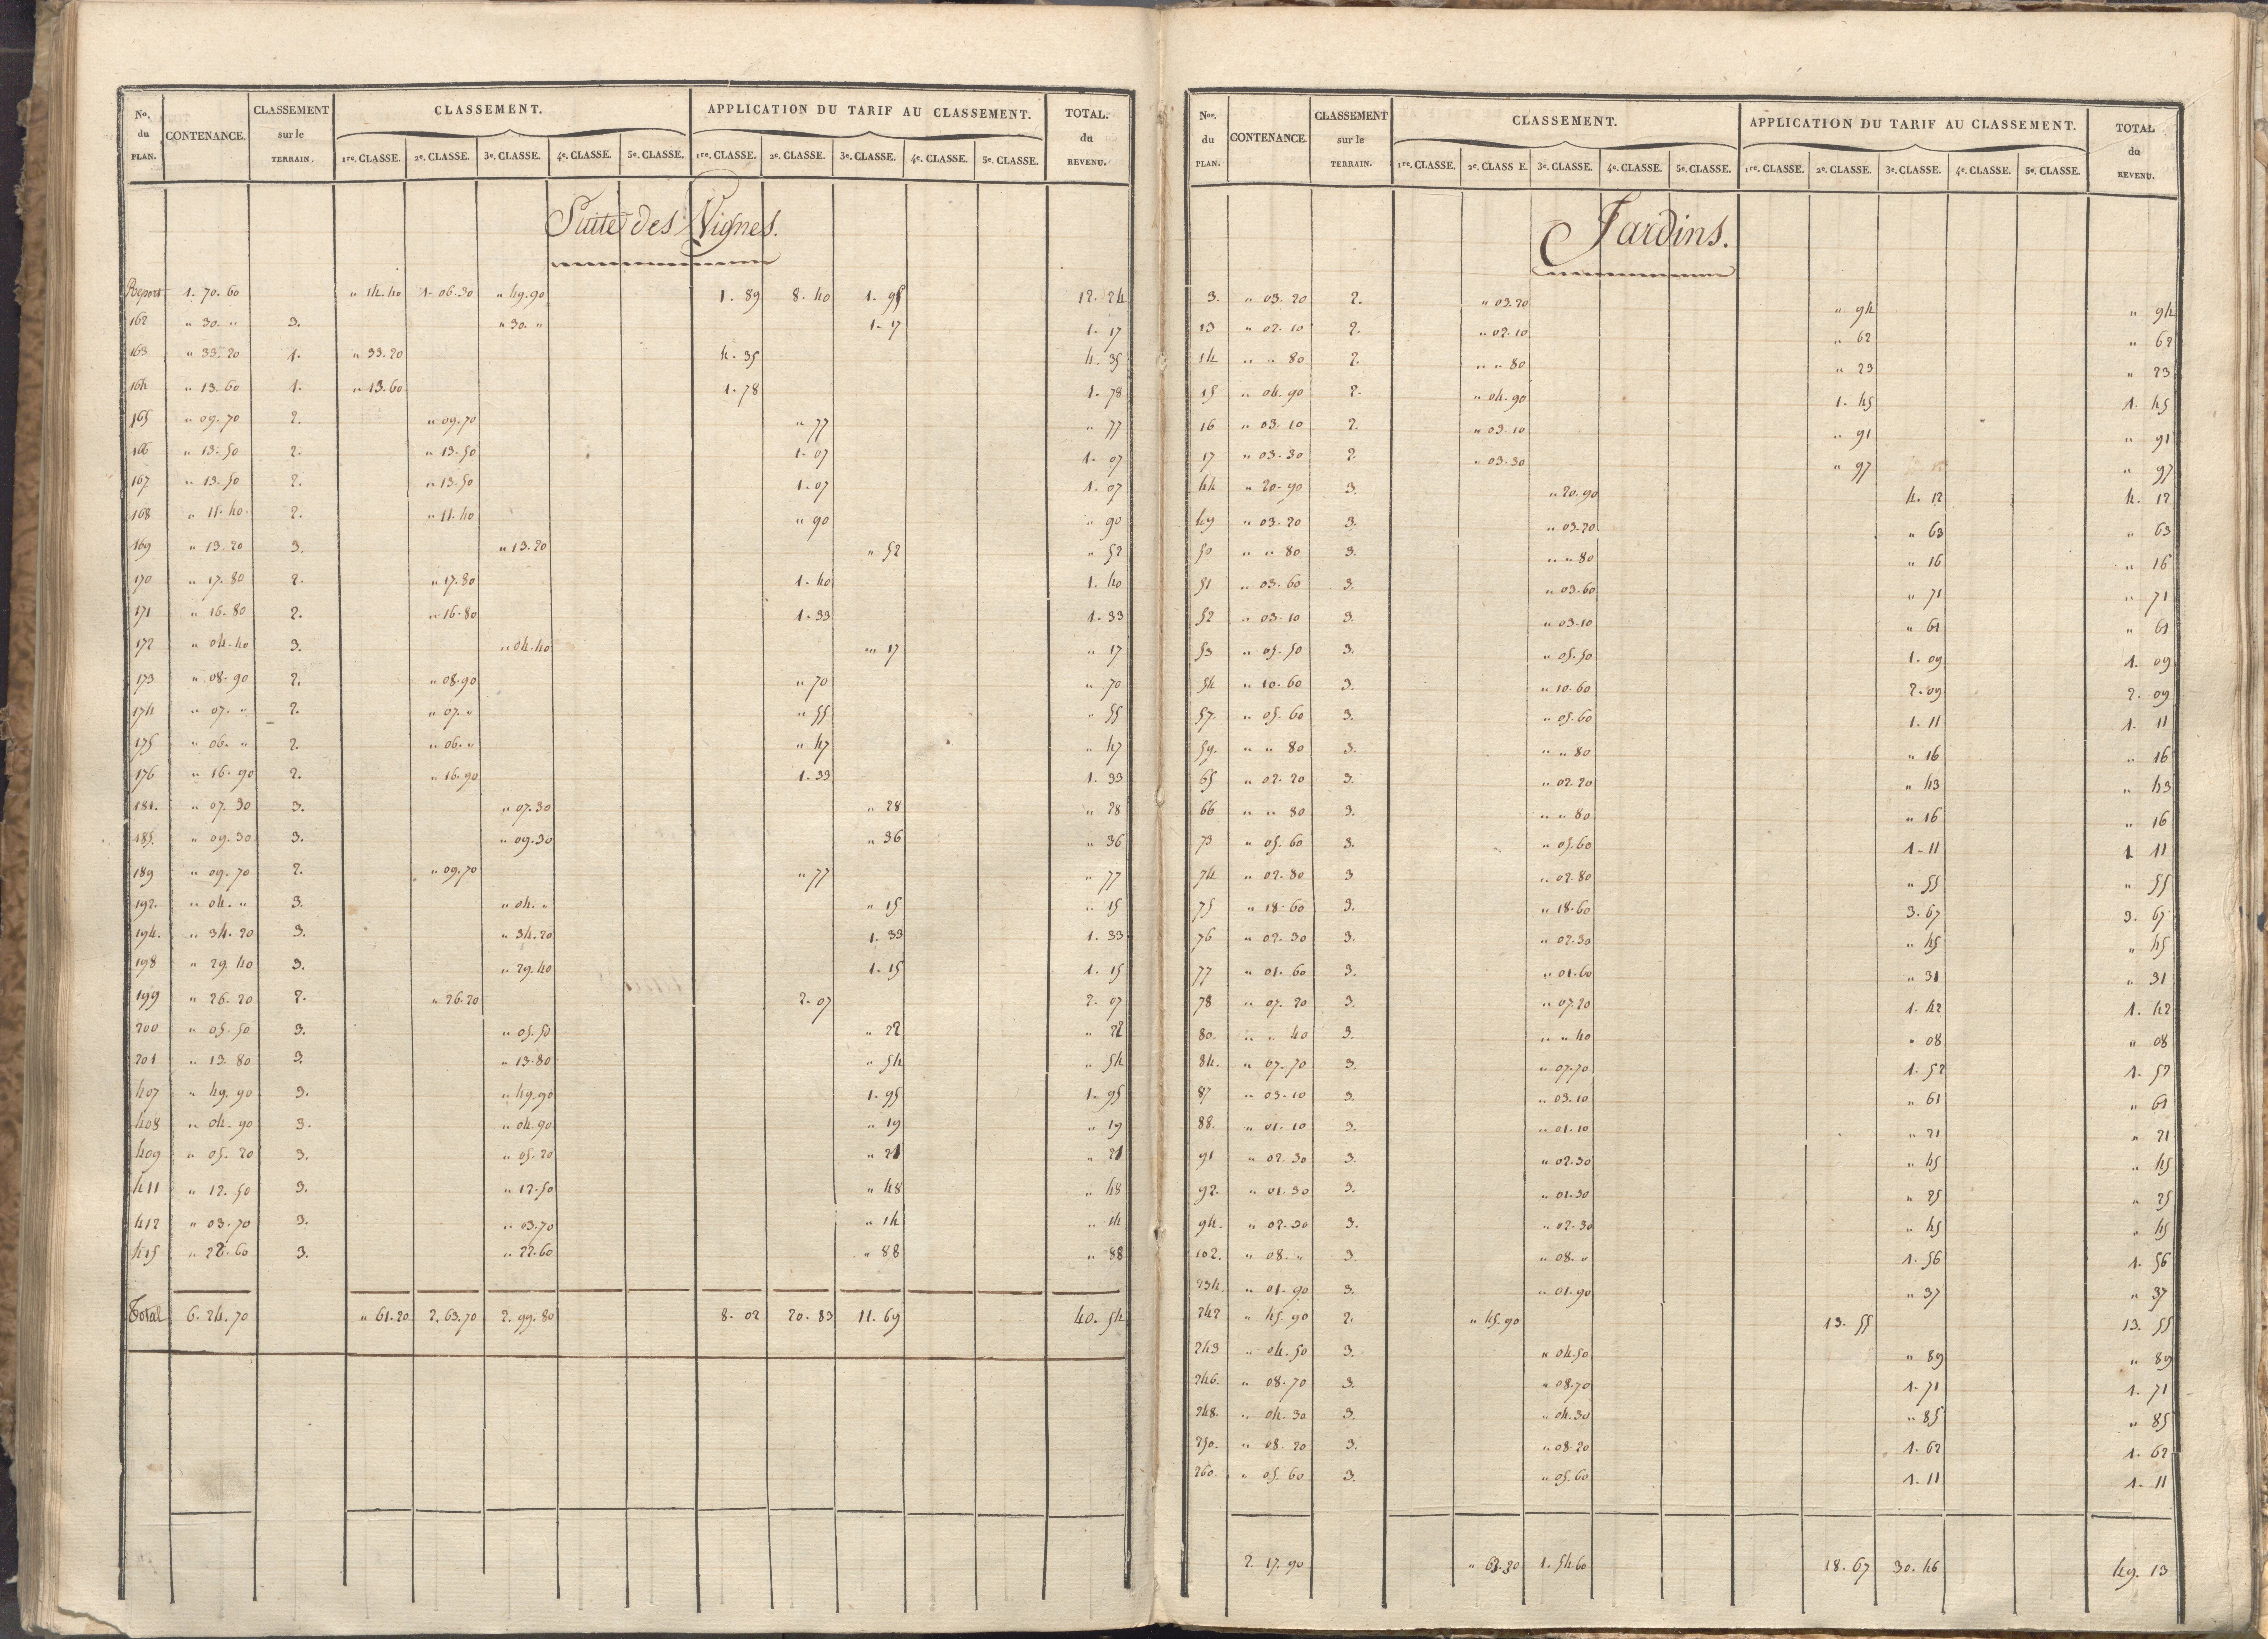 No. du PLAN. CONTENANCE. CLASSEMENT sur le TERRAIN. CLASSEMENT. APPLICATION DU TARIF AU CLASSEMENT. TOTAL. du REVENU.
1re. CLASSE. 2e. CLASSE. 3e. CLASSE. 4e. CLASSE. 5e. CLASSE. 1re. CLASSE. 2e. CLASSE. 3e. CLASSE. 4e. CLASSE. 5e. CLASSE.
Suite des Vignes.
Report 1. 70. 60 " 14. 40 1. 06. 30 " 49. 90 1. 89 8. 40 1. 95 12. 24
162 " 30. " 3. " 30. " 1. 17 1. 17
163 " 33. 20 1. " 33. 20 4. 35 4. 35
164 " 13. 60 1. " 13. 60 1. 78 1. 78
165 " 09. 70 2. " 09. 70 " 77 " 77
166 " 13. 50 2. " 13. 50 1. 07 1. 07
167 " 13. 50 2. " 13. 50 1. 07 1. 07
168 " 11. 40 2. " 11. 40 " 90 " 90
169 " 13. 20 3. " 13. 20 " 52 " 52
170 " 17. 80 2. " 17. 80 1. 40 1. 40
171 " 16. 80 2. " 16. 80 1. 33 1. 33
172 " 04. 40 3. " 04. 40 " 17 " 17
173 " 08. 90 2. " 08. 90 " 70 " 70
174 " 07. " 2. " 07. " " 55 " 55
175 " 06. " 2. " 06. " " 47 " 47
176 " 16. 90 2. " 16. 90 1. 33 1. 33
181. " 07. 30 3. " 07. 30 " 28 " 28
185. " 09. 30 3. " 09. 30 " 36 " 36
189 " 09. 70 2. " 09. 70 " 77 " 77
192. " 04. " 3. " 04. " " 15 " 15
194. " 34. 20 3. " 34. 20 1. 33 1. 33
198 " 29. 40 3. " 29. 40 1. 15 1. 15
199 " 26. 20 2. " 26. 20 2. 07 2. 07
200 " 05. 50 3. " 05. 50 " 22 " 22
201 " 13. 80 3. " 13. 80 " 54 " 54
407 " 49. 90 3. " 49. 90 1. 95 1. 95
408 " 04. 90 3. " 04. 90 " 19 " 19
409 " 05. 20 3. " 05. 20 " 21 " 21
411 " 12. 50 3. " 12. 50 " 48 " 48
412 " 03. 70 3. " 03. 70 " 14 " 14
415 " 22. 60 3. " 22. 60 " 88 " 88
Total 6. 24. 70 " 61. 20 2. 63. 70 2. 99. 80 8. 02 20. 83 11. 69 40. 54
Nos. du PLAN. CONTENANCE. CLASSEMENT sur le TERRAIN. CLASSEMENT. APPLICATION DU TARIF AU CLASSEMENT. TOTAL du REVENU.
1re. CLASSE. 2e. CLASS E. 3e. CLASSE. 4e. CLASSE. 5e. CLASSE. 1re. CLASSE. 2e. CLASSE. 3e. CLASSE. 4e. CLASSE. 5e. CLASSE.
Jardins.
3. " 03. 20 2. " 03. 20 " 94 " 94
13 " 02. 10 2. " 02. 10 " 62 " 62
14 " " 80 2. " " 80 " 23 " 23
15 " 04. 90 2. " 04. 90 1. 45 1. 45
16 " 03. 10 2. " 03. 10 " 91 " 91
17 " 03. 30 2. " 03. 30 " 97 " 97
44 " 20. 90 3. " 20. 90 4. 12 4. 12
49 " 03. 20 3. " 03. 20 " 63 " 63
50 " " 80 3. " " 80 " 16 " 16
51 " 03. 60 3. " 03. 60 " 71 " 71
52 " 03. 10 3. " 03. 10 " 61 " 61
53 " 05. 50 3. " 05. 50 1. 09 1. 09
54 " 10. 60 3. " 10. 60 2. 09 2. 09
57. " 05. 60 3. " 05. 60 1. 11 1. 11
59. " " 80 3. " " 80 " 16 " 16
65 " 02. 20 3. " 02. 20 " 43 " 43
66 " " 80 3. " " 80 " 16 " 16
73 " 05. 60 3. " 05. 60 1. 11 1 11
74 " 02. 80 3 " 02. 80 " 55 " 55
75 " 18. 60 3. " 18. 60 3. 67 3. 67
76 " 02. 30 3. " 02. 30 " 45 " 45
77 " 01. 60 3. " 01. 60 " 31 " 31
78 " 07. 20 3. " 07. 20 1. 42 1. 42
80. " " 40 3. " " 40 " 08 " 08
84. " 07. 70 3. " 07. 70 1. 52 1. 52
87 " 03. 10 3. " 03. 10 " 61 " 61
88. " 01. 10 3. " 01. 10 " 21 " 21
91 " 02. 30 3. " 02. 30 " 45 " 45
92. " 01. 30 3. " 01. 30 " 25 " 25
94. " 02. 30 3. " 02. 30 " 45 " 45
102. " 08. " 3. " 08. " 1. 56 1. 56
234. " 01. 90 3. " 01. 90 " 37 " 37
242 " 45. 90 2. " 45. 90 13. 55 13. 55
243 " 04. 50 3. " 04. 50 " 89 " 89
246. " 08. 70 3. " 08. 70 1. 71 1. 71
248. " 04. 30 3. " 04. 30 " 85 " 85
250. " 08. 20 3. " 08. 20 1. 62 1. 62
260. " 05. 60 3. " 05. 60 1. 11 1. 11
2. 17. 90 " 63. 30 1. 54. 60 18. 67 30. 46 49. 13